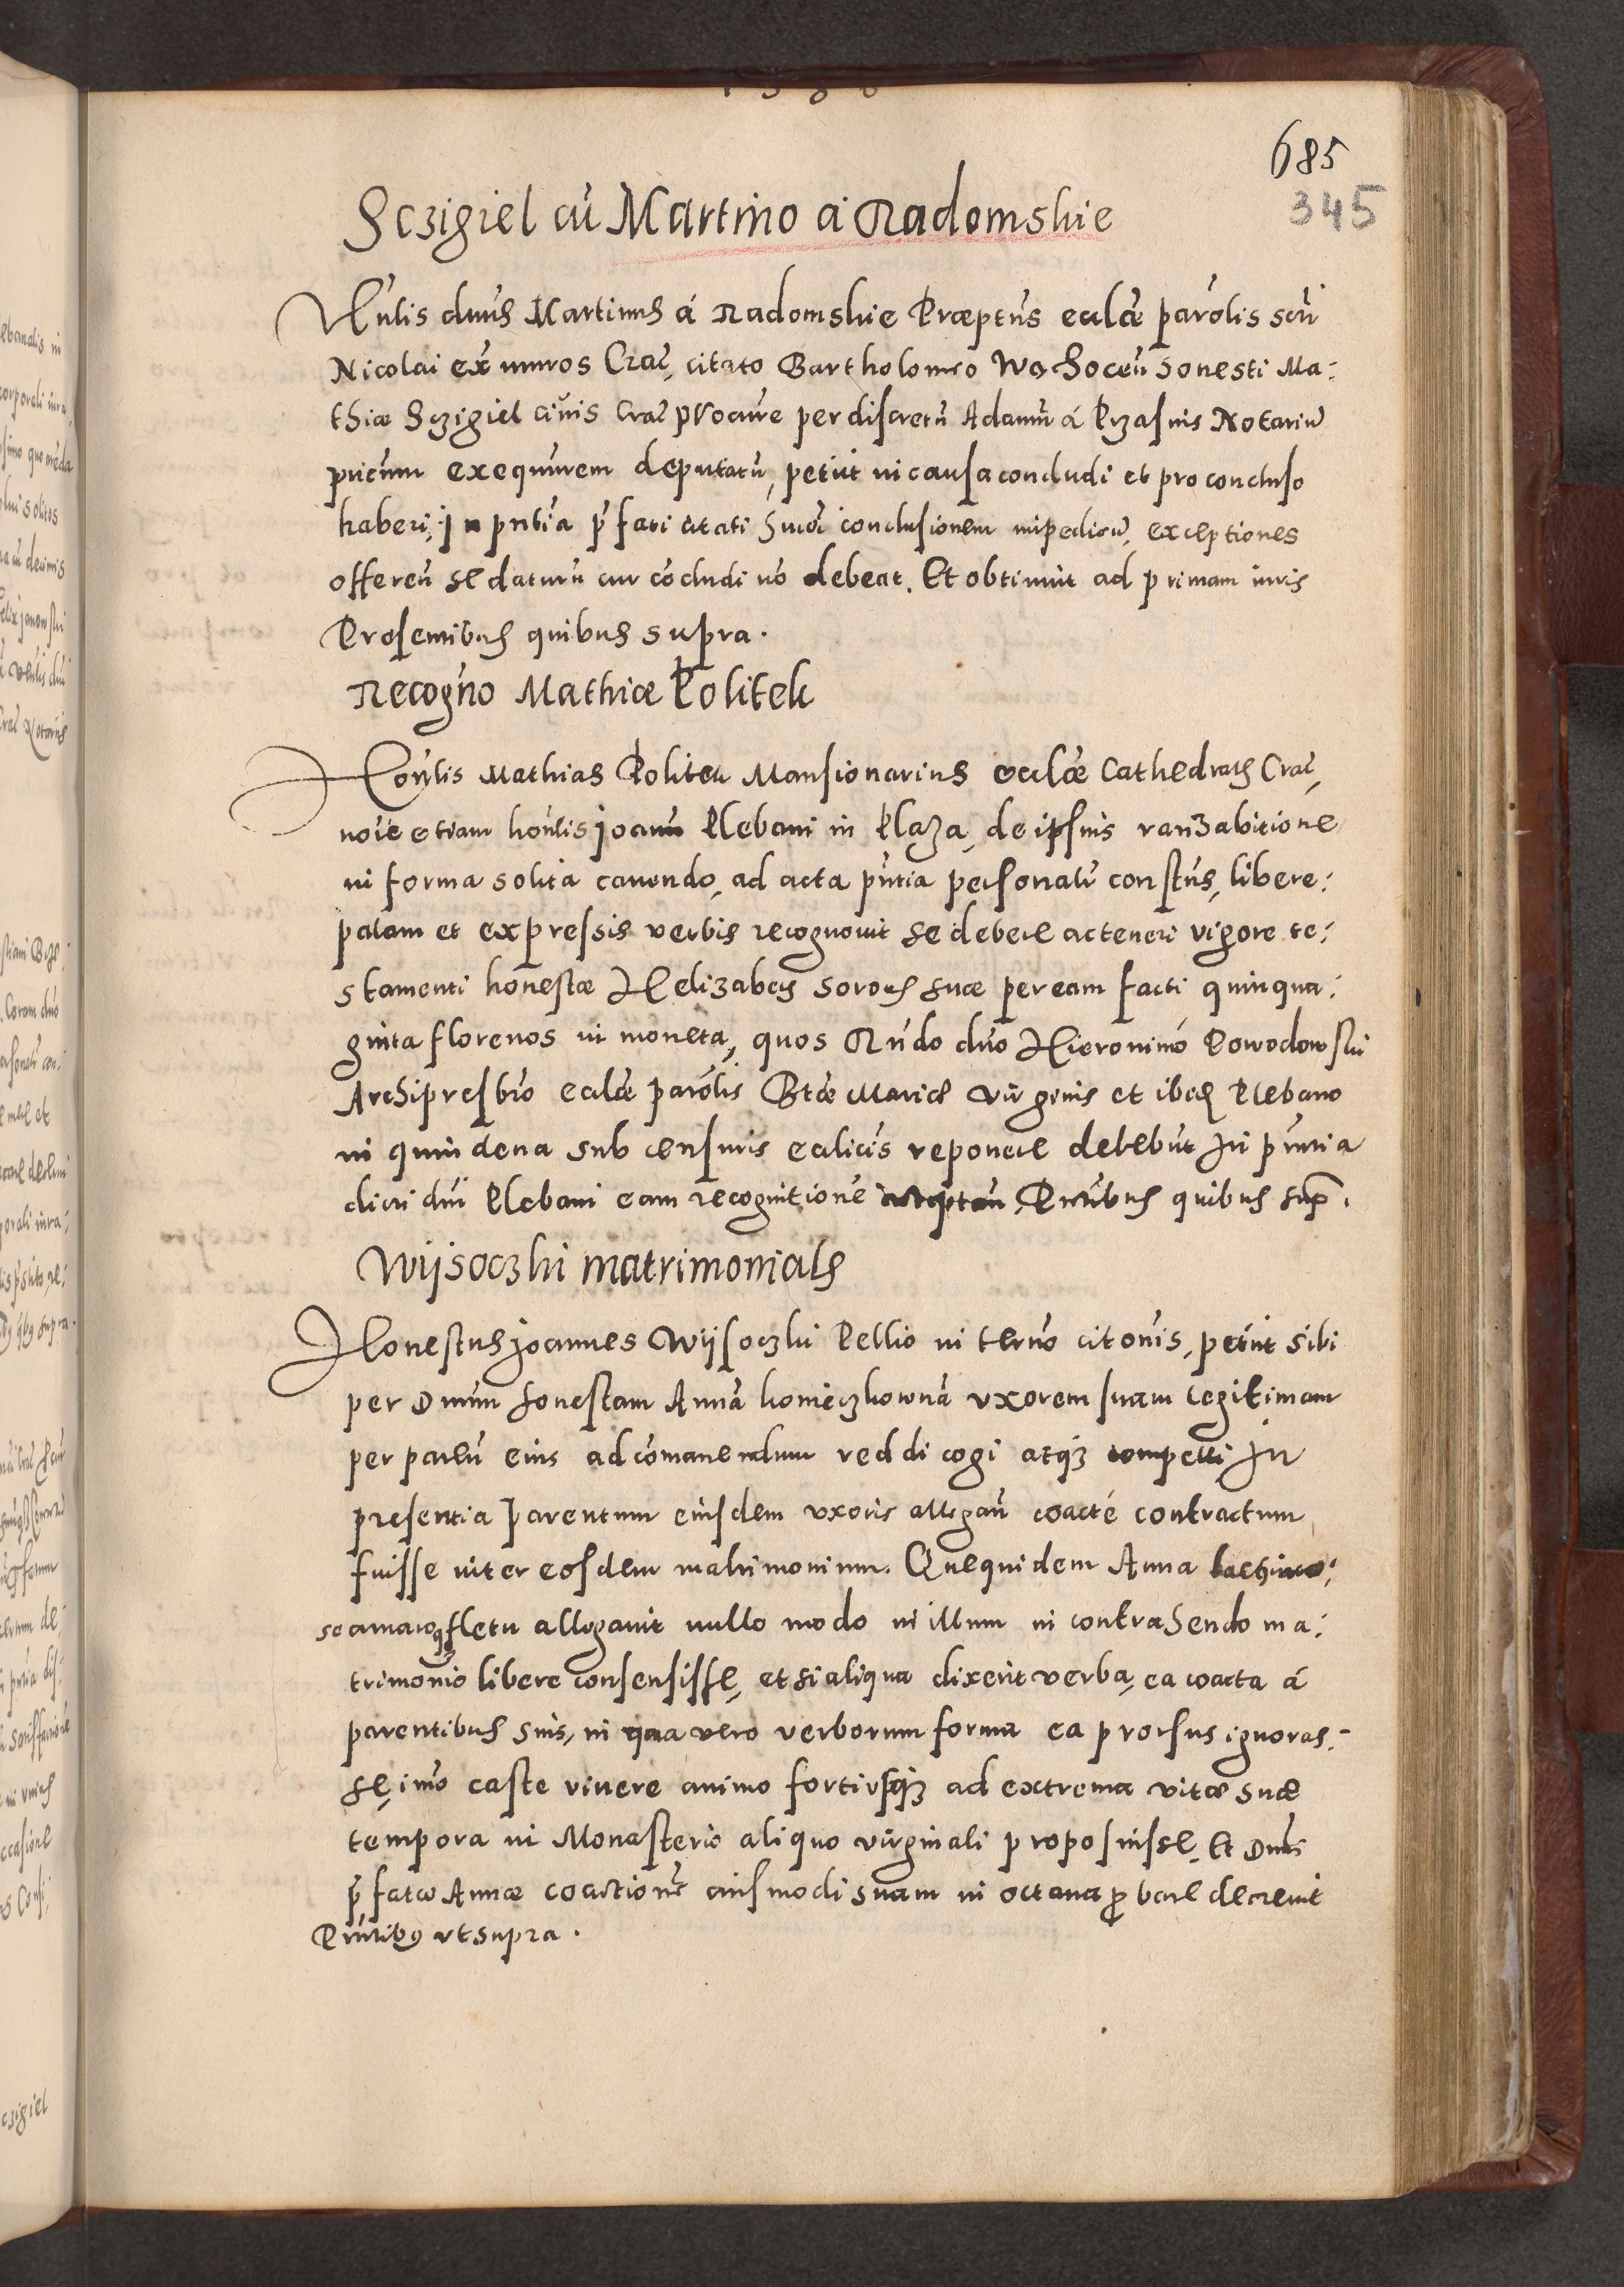 685
345
Sczigiel cū Martino a Radomskie
Vn̄lis dnūs Martinus á Radomskie Præptūs eccl̄æ parōlis sctī
Nicolai ex̄ muros Crac̄, citato Bartholomeo honesti Ma:
thiæ Sczigiel civis Crac̄ procur̄e per discretū Adamū á Przasnis Notariū
exequūrem deputatū, petiit in causa concludi et pro concluso
haberi, In pn̄tia p̄fati citati conclusionem impedien̄, exceptiones
offeren̄ se daturū cur cōcludi nō debeat. Et obtinuit ad primam iuris
Presentibus quibus supra.
Recogn̄o Mathiæ Politek
Hon̄lis Mathias Politek Mansionarius eccl̄æ Cathedralis Crac̄,
noīe etiam hon̄lis Joannis Plebani in Plaza, de ipsius ranzabitione
in forma solita cavendo, ad acta pn̄tia personalī constūs, libere:
palam et expressis verbis recognovit se debere ac teneri vigore te:
stamenti honestæ Helizabeth sororis suæ per eam facti quinqua:
ginta florenos in moneta, quos Rn̄do dn̄o Hieronimo Powodowski
Archipresbr̄o eccl̄æ parōlis Btæ Mariæ Virginis et ibid̄ Plebano
in quindena sub censuris eccl̄icis reponere debebit In pn̄tia
dicti dn̄i Plebani eam recognitionē acceptan̄ Pn̄tibus quibus sup̄.
Wijsoczki matrimonials
Honestus Joannes Wijsoczki Pellio in termo citōnis, petiit sibi
per Dn̄um honestam Annā konieczkownā uxorem suam legitimam
per partū eius ad cōmanendum reddi cogi atq3 compelli In
presentia parentum eiusdem uxoris allegan̄ coacté contractum
fuisse inter eosdem matrimonium. Quequidem Anna lachrimo:
so amaroq3 fletu allegavit nullo modo in illum in contrahendo ma:
trimonio libere consensisse, et si aliqua dixerit verba, ea coacta á
parentibus suis, in qua vero verborum forma ea prorsus ignoras:
se, imo caste vivere animo fortiusq3 ad extrema vitæ suæ
tempora in Monasterio aliquo virginali proposuisse. Et Dn̄us
p̄fatæ Annæ coactionē eiusmodi suam in octava probare decrevit
Pn̄tibus ut supra.